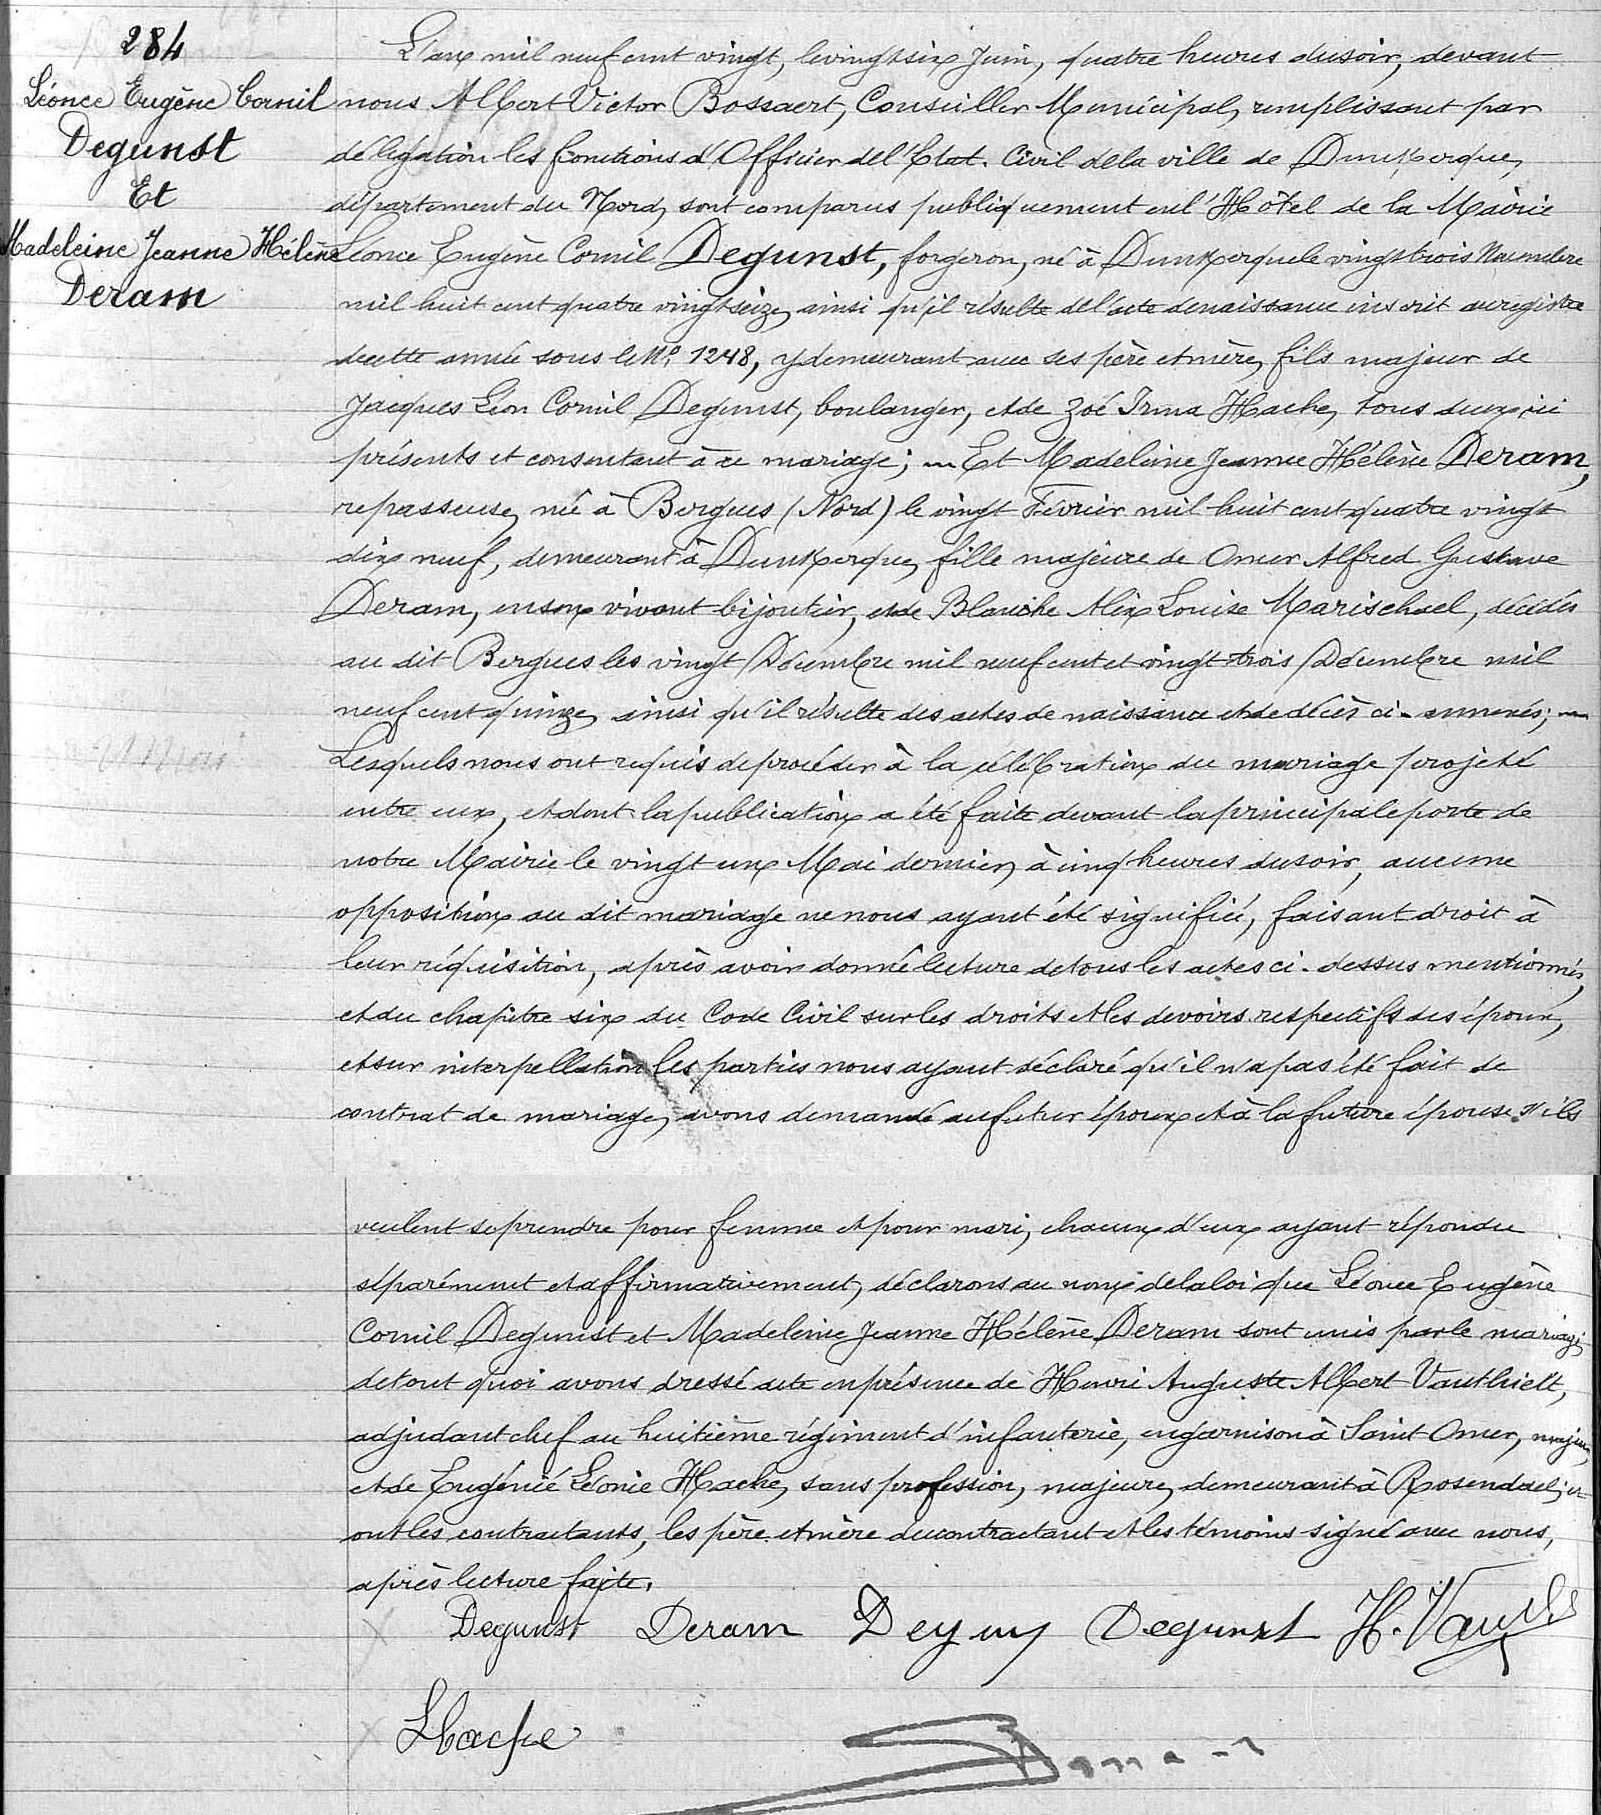 284
Léonce Eugène Cornil
Degunst
Et
Madeleine Jeanne Hélène
Deram
L'an mil neuf cent vingt, le vingt six Juin, quatre heures du soir, devant
nous Albert Victor Bossaert, Conseiller Municipal, remplissant par
délégation les fonctions d'Officier de l'Etat. Civil de la ville de Dunkerque,
département du Nord, sont comparus publiquement en l'Hôtel de la Mairie
Léonce Eugène Cornil Degunst, forgeron, né à Dunkerque le vingt trois Novembre
mil huit cent quatre vingt seize, ainsi qu'il résulte de l'acte de naissance inscrit au registre
de cette année sous le No. 1248, y demeurant avec ses père et mère, fils majeur de
Jacques Léon Cornil Degunst, boulanger, et de Zoé Irma Hache, tous deux ici
présents et consentant à ce mariage; Et Madeleine Jeanne Hélène Deram,
repasseuse, née à Bergues (Nord) le vingt Février mil huit cent quatre vingt
dix neuf, demeurant à Dunkerque, fille majeure de Omer Alfred Gustave
Deram, en son vivant bijoutier, et de Blanche Alix Louise Marischael, décédés
au dit Bergues les vingt Décembre mil neuf cent et vingt trois Décembre mil
neuf cent quinze, ainsi qu'il résulte des actes de naissance et de décès ci-annexés;
Lesquels nous ont requis de procéder à la célébration du mariage projeté
entre eux, et dont la publication a été faite devant la principale porte de
notre Mairie le vingt un Mai dernier, à cinq heures du soir, aucune
opposition au dit mariage ne nous ayant été signifiée, faisant droit à
leur réquisition, après avoir donné lecture de tous les actes ci-dessus mentionnés,
et du chapitre six du Code Civil sur les droits et les devoirs respectifs des époux,
et sur interpellation les parties nous ayant déclaré qu'il n'a pas été fait de
contrat de mariage, avons demandé au futur époux et à la future épouse s'ils
veulent se prendre pour femme et pour mari, chacun d'eux ayant répondu
séparément et affirmativement, déclarons au nom de la loi que Léonce Eugène
Cornil Degunst et Madeleine Jeanne Hélène Deram sont unis par le mariage;
de tout quoi avons dressé acte en présence de Henri Auguste Albert Vanthielt,
adjudant chef au huitième régiment d'infanterie, en garnison à Saint Omer, majeur,
et de Eugénie Léonie Hache, sans profession, majeure, demeurant à Rosendael; et
ont les contractants, les père et mère du contractant et les témoins signé avec nous,
après lecture faite.
Degunst Deram Degunst H. Van
Hache